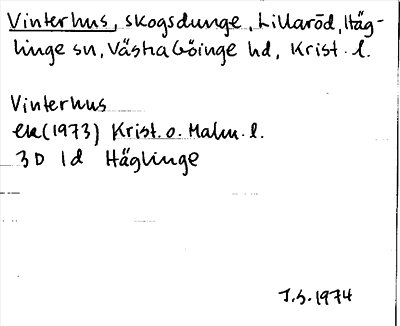 Vinterhus, skogsdunge, Lillaröd, Häg-
linge sn, Västra Göinge hd, Krist. l.
Vinterhus
ek (1973) Krist. o. Malm. l.
3D 1d Häglinge
J.S. 1974